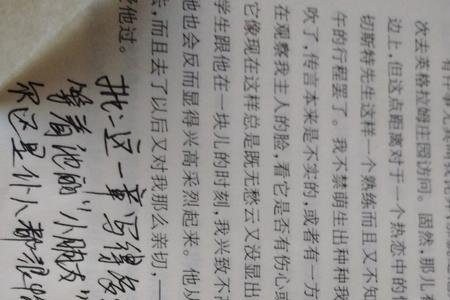 次去英格拉姆庄园访问。固然，那儿
边上，但这点距离对于一个热恋中的
切斯特先生这样一个熟练而且又不知
午的行程罢了。我不禁萌生出种种我
吹了，传言本来是不实的，或者有一方
在观察我主人的脸，看它是否有伤心或
它像现在这样总是既无愁云又没显出
学生跟他在一块儿的时刻，我兴致不
他也会反而显得兴高采烈起来。他从
去，而且去了以后又对我那么亲切，—
他过。
这一章写得
着他的“小朋友”
你还是什么都很